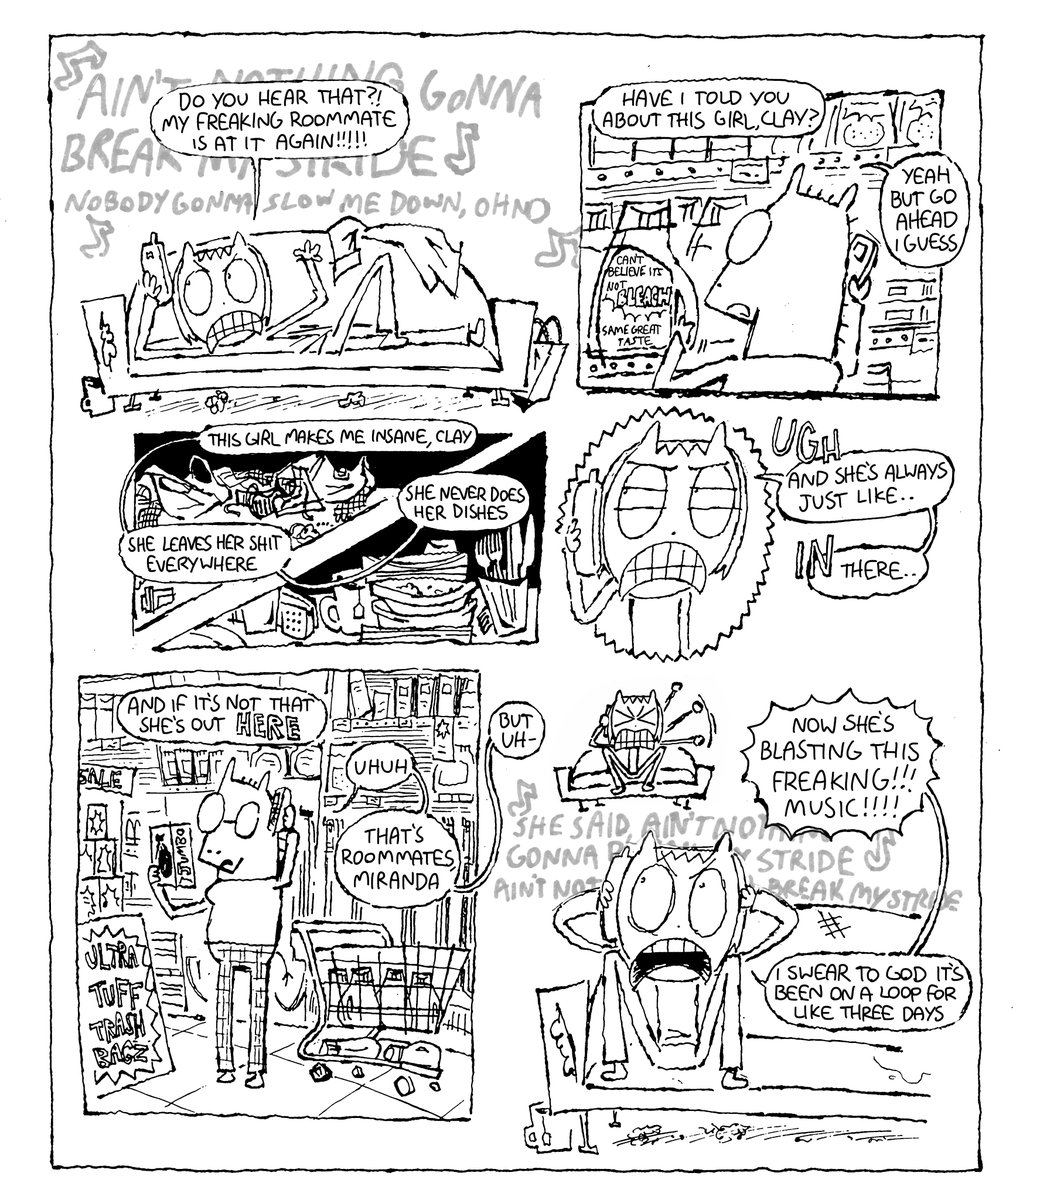 AIN'T NOTHING GONNA
BREAK MY STRIDE
NOBODY GONNA SLOW ME DOWN, OH NO
DO YOU HEAR THAT?!
MY FREAKING ROOMMATE
IS AT IT AGAIN!!!!!
HAVE I TOLD YOU
ABOUT THIS GIRL, CLAY?
YEAH
BUT GO
AHEAD
I GUESS
CAN'T
BELIEVE ITS
NOT
BLEACH
SAME GREAT
TASTE
THIS GIRL MAKES ME INSANE, CLAY
SHE LEAVES HER SHIT
EVERYWHERE
SHE NEVER DOES
HER DISHES
UGH
AND SHE'S ALWAYS
JUST LIKE..
IN THERE..
AND IF IT'S NOT THAT
SHE'S OUT HERE
UHUH
THAT'S
ROOMMATES
MIRANDA
BUT
UH-
SALE
JUMBO
ULTRA
TUFF
TRASH
BAGZ
NOW SHE'S
BLASTING THIS
FREAKING!!!
MUSIC!!!!
SHE SAID, AIN'T NOTH
GONNA B STRIDE
AIN'T NOT BREAK MY STRIDE
I SWEAR TO GOD IT'S
BEEN ON A LOOP FOR
LIKE THREE DAYS